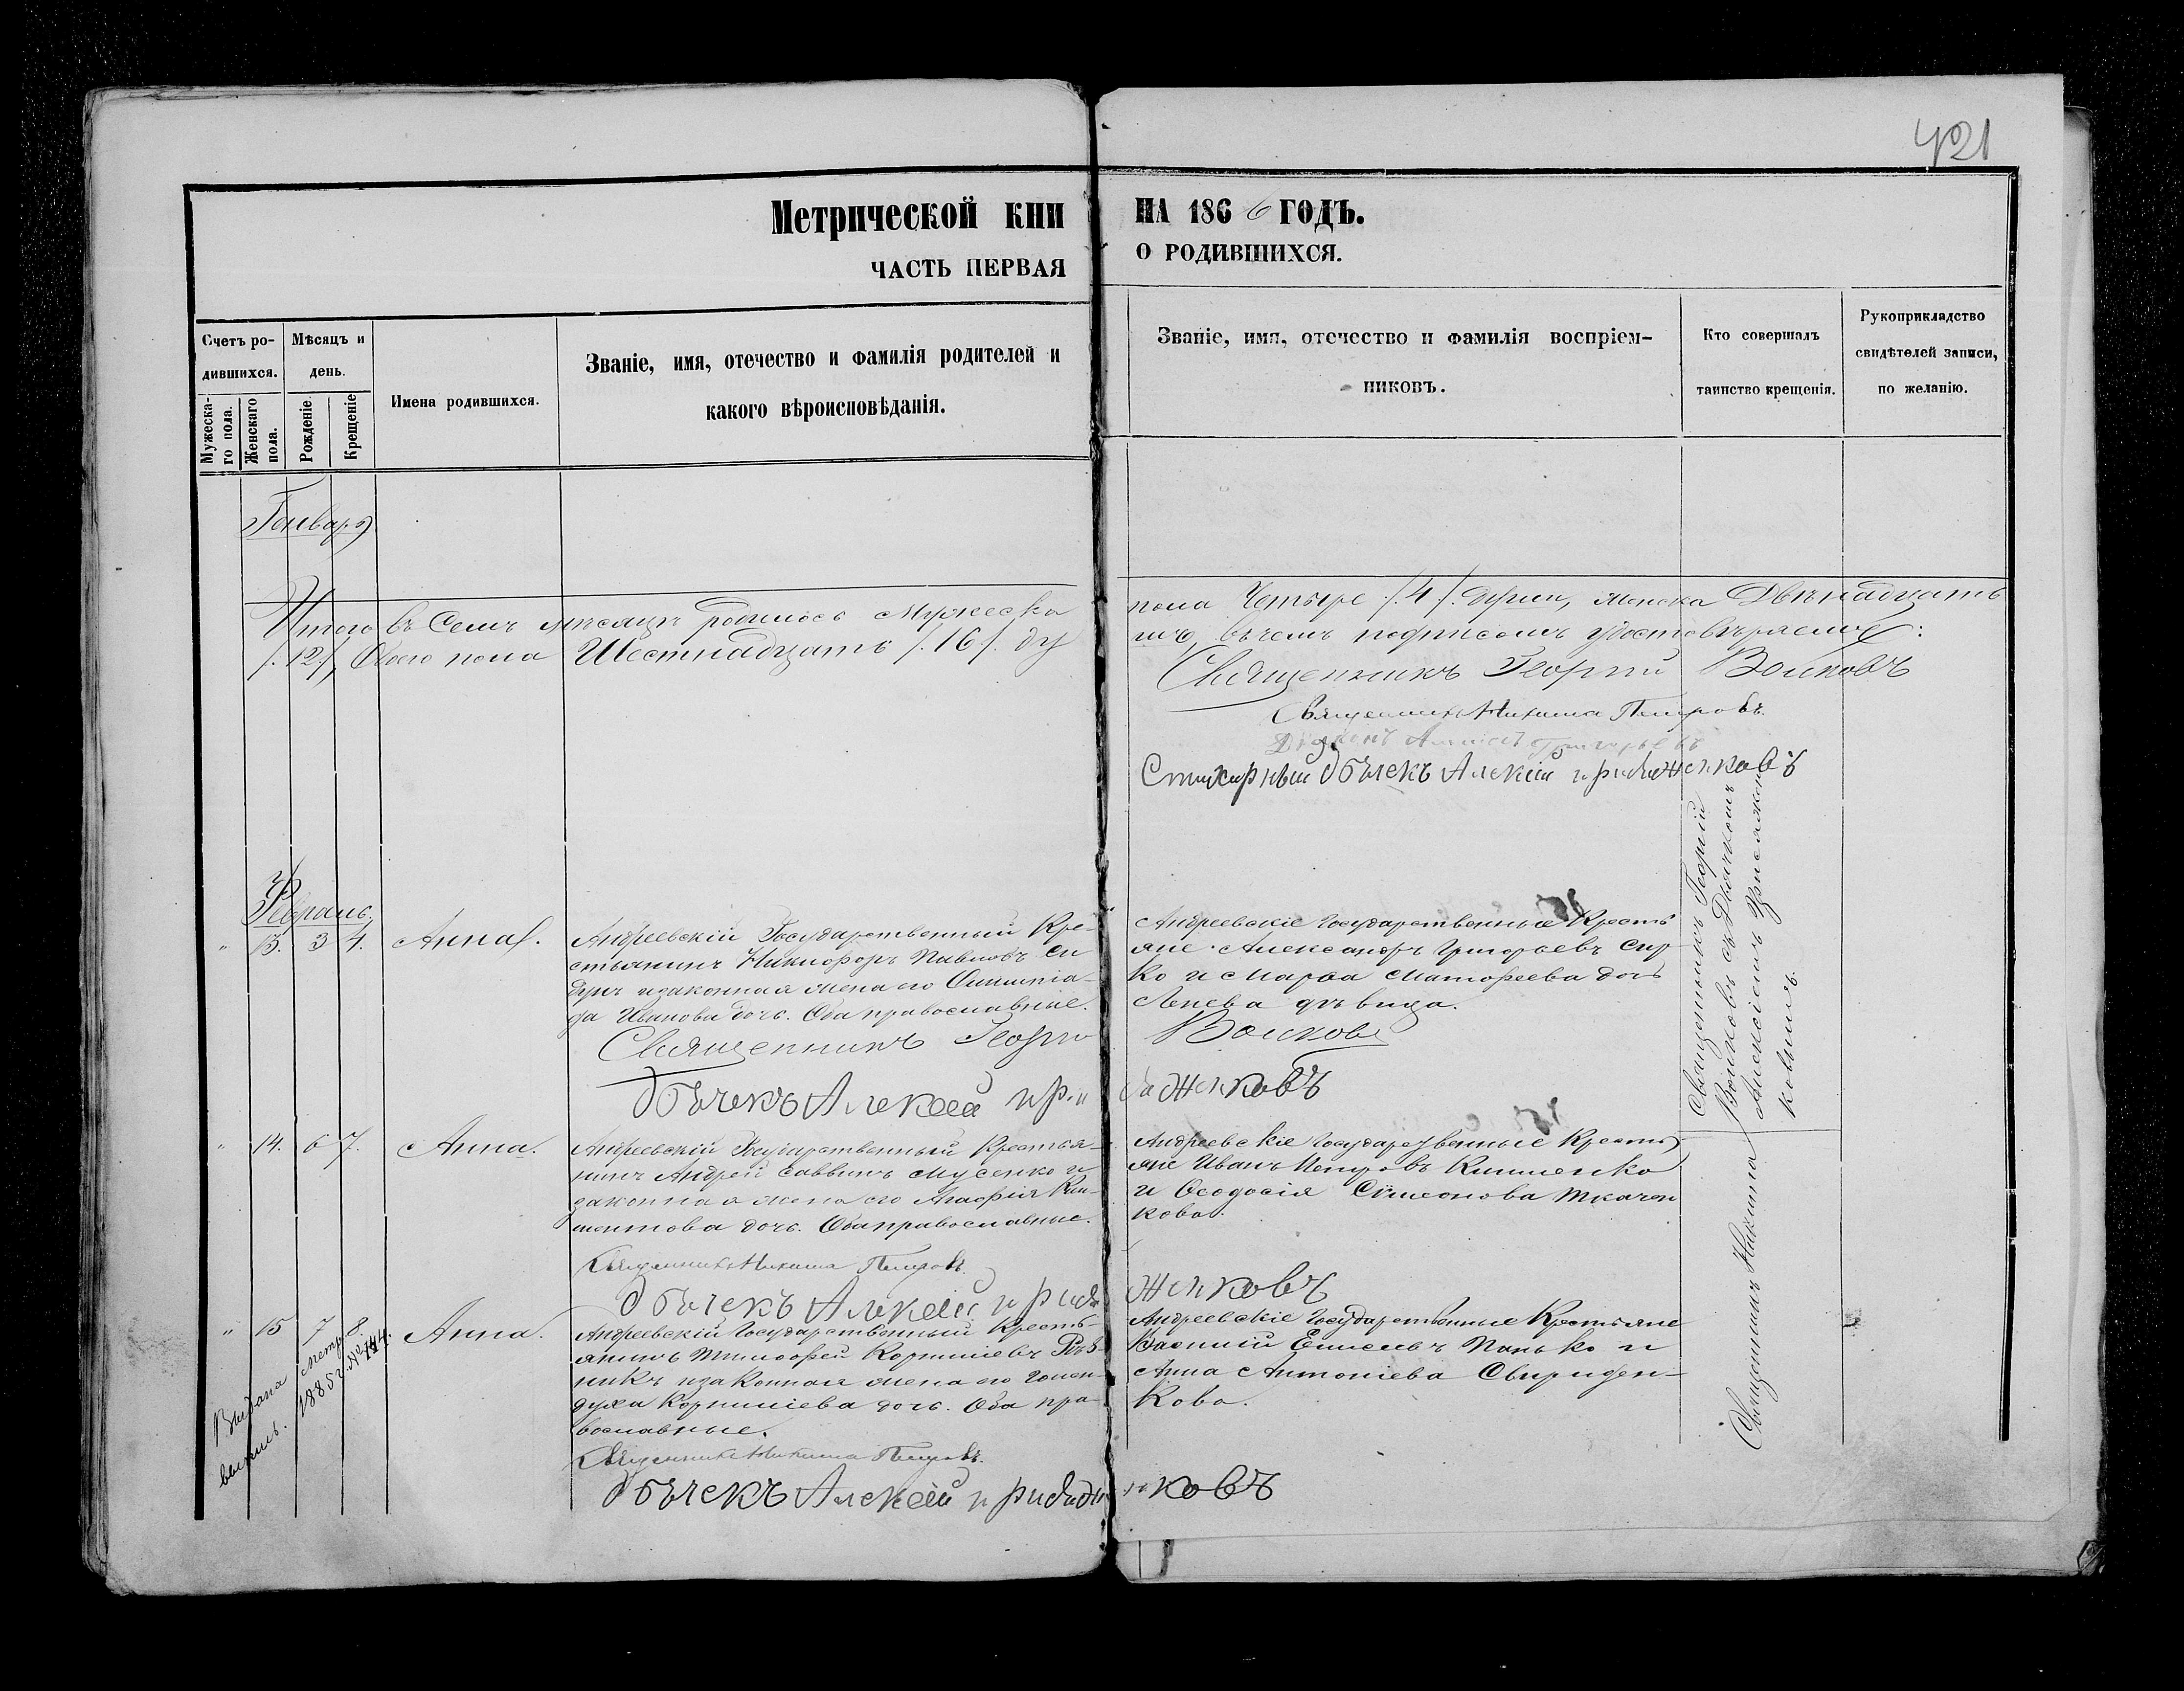 421
Метрической кни
НА 1866 ГОДЪ.
ЧАСТЬ ПЕРВАЯ
О РОДИВШИХСЯ.
Счетъ ро-
дившихся.
Мужеска-
го пола.
Женскаго
пола.
Мѣсяцъ и
день.
Рожденіе.
Крещеніе
Имена родившихся.
Званіе, имя, отечество и фамилія родителей и
какого вѣроисповѣданія.
Званіе, имя, отечество и фамилія воспріем-
никовъ.
Кто совершалъ
таинство крещенія.
Рукоприкладство
свидѣтелей записи,
по желанію.
Генварь
Итого въ семъ мѣсяцѣ родилось Мужеска
пола Четыре /.4/. души, женска Двѣнадцать
/.12/, Обоего пола Шестнадцать /.16/. ду
шъ, въ чемъ подписомъ удостовѣряемъ:
Священникъ Георгій Волковъ
Священникъ Никита Петровъ
Алексій
Стихарный дьячекъ Алексій
Февраль
" 13. 3 4. Анна.
Андреевскій Государственный Кре-
стьянинъ Никифоръ Павловъ
и законная жена его Олимпіа-
да Иванова дочь. Оба православные.
Священникъ Георгій
дьячекъ Алексей
Андреевскіе Государственные Кресть
яне Александръ Григорьевъ Сир
ко и Марѳа Матѳеева дочь
дѣвица.
Волковъ
Священникъ Георгій
Волковъ съ Дьячкомъ
Алексіемъ
ковымъ.
" 14. 6 7. Анна.
Андреевскій Государственный Крестья-
нинъ Андрей Саввинъ Мусенко и
законная жена его Агафія Кли-
ментова дочь. Оба православные.
Священникъ Никита Петровъ
дьячекъ Алексей
Андреевскіе Государственные Кресть
яне Иванъ Петровъ Клименко
и Ѳеодосія Симеонова Ткачен
кова.
" 15 7 8 Анна.
Выдана метр.
выпись. 1885 г. № 144.
Андреевскій Государственный Кресть-
янинъ Тимоѳей Корниліевъ Рѣз-
никъ и законная жена его Голен-
духа Корниліева дочь. Оба пра-
вославные.
Священникъ Никита Петровъ.
дьячекъ Алексей
Андреевскіе Государственные Крестьяне
Василій Елисеевъ Панько и
Анна Антоніева Свириден-
кова.
Священникъ Никита